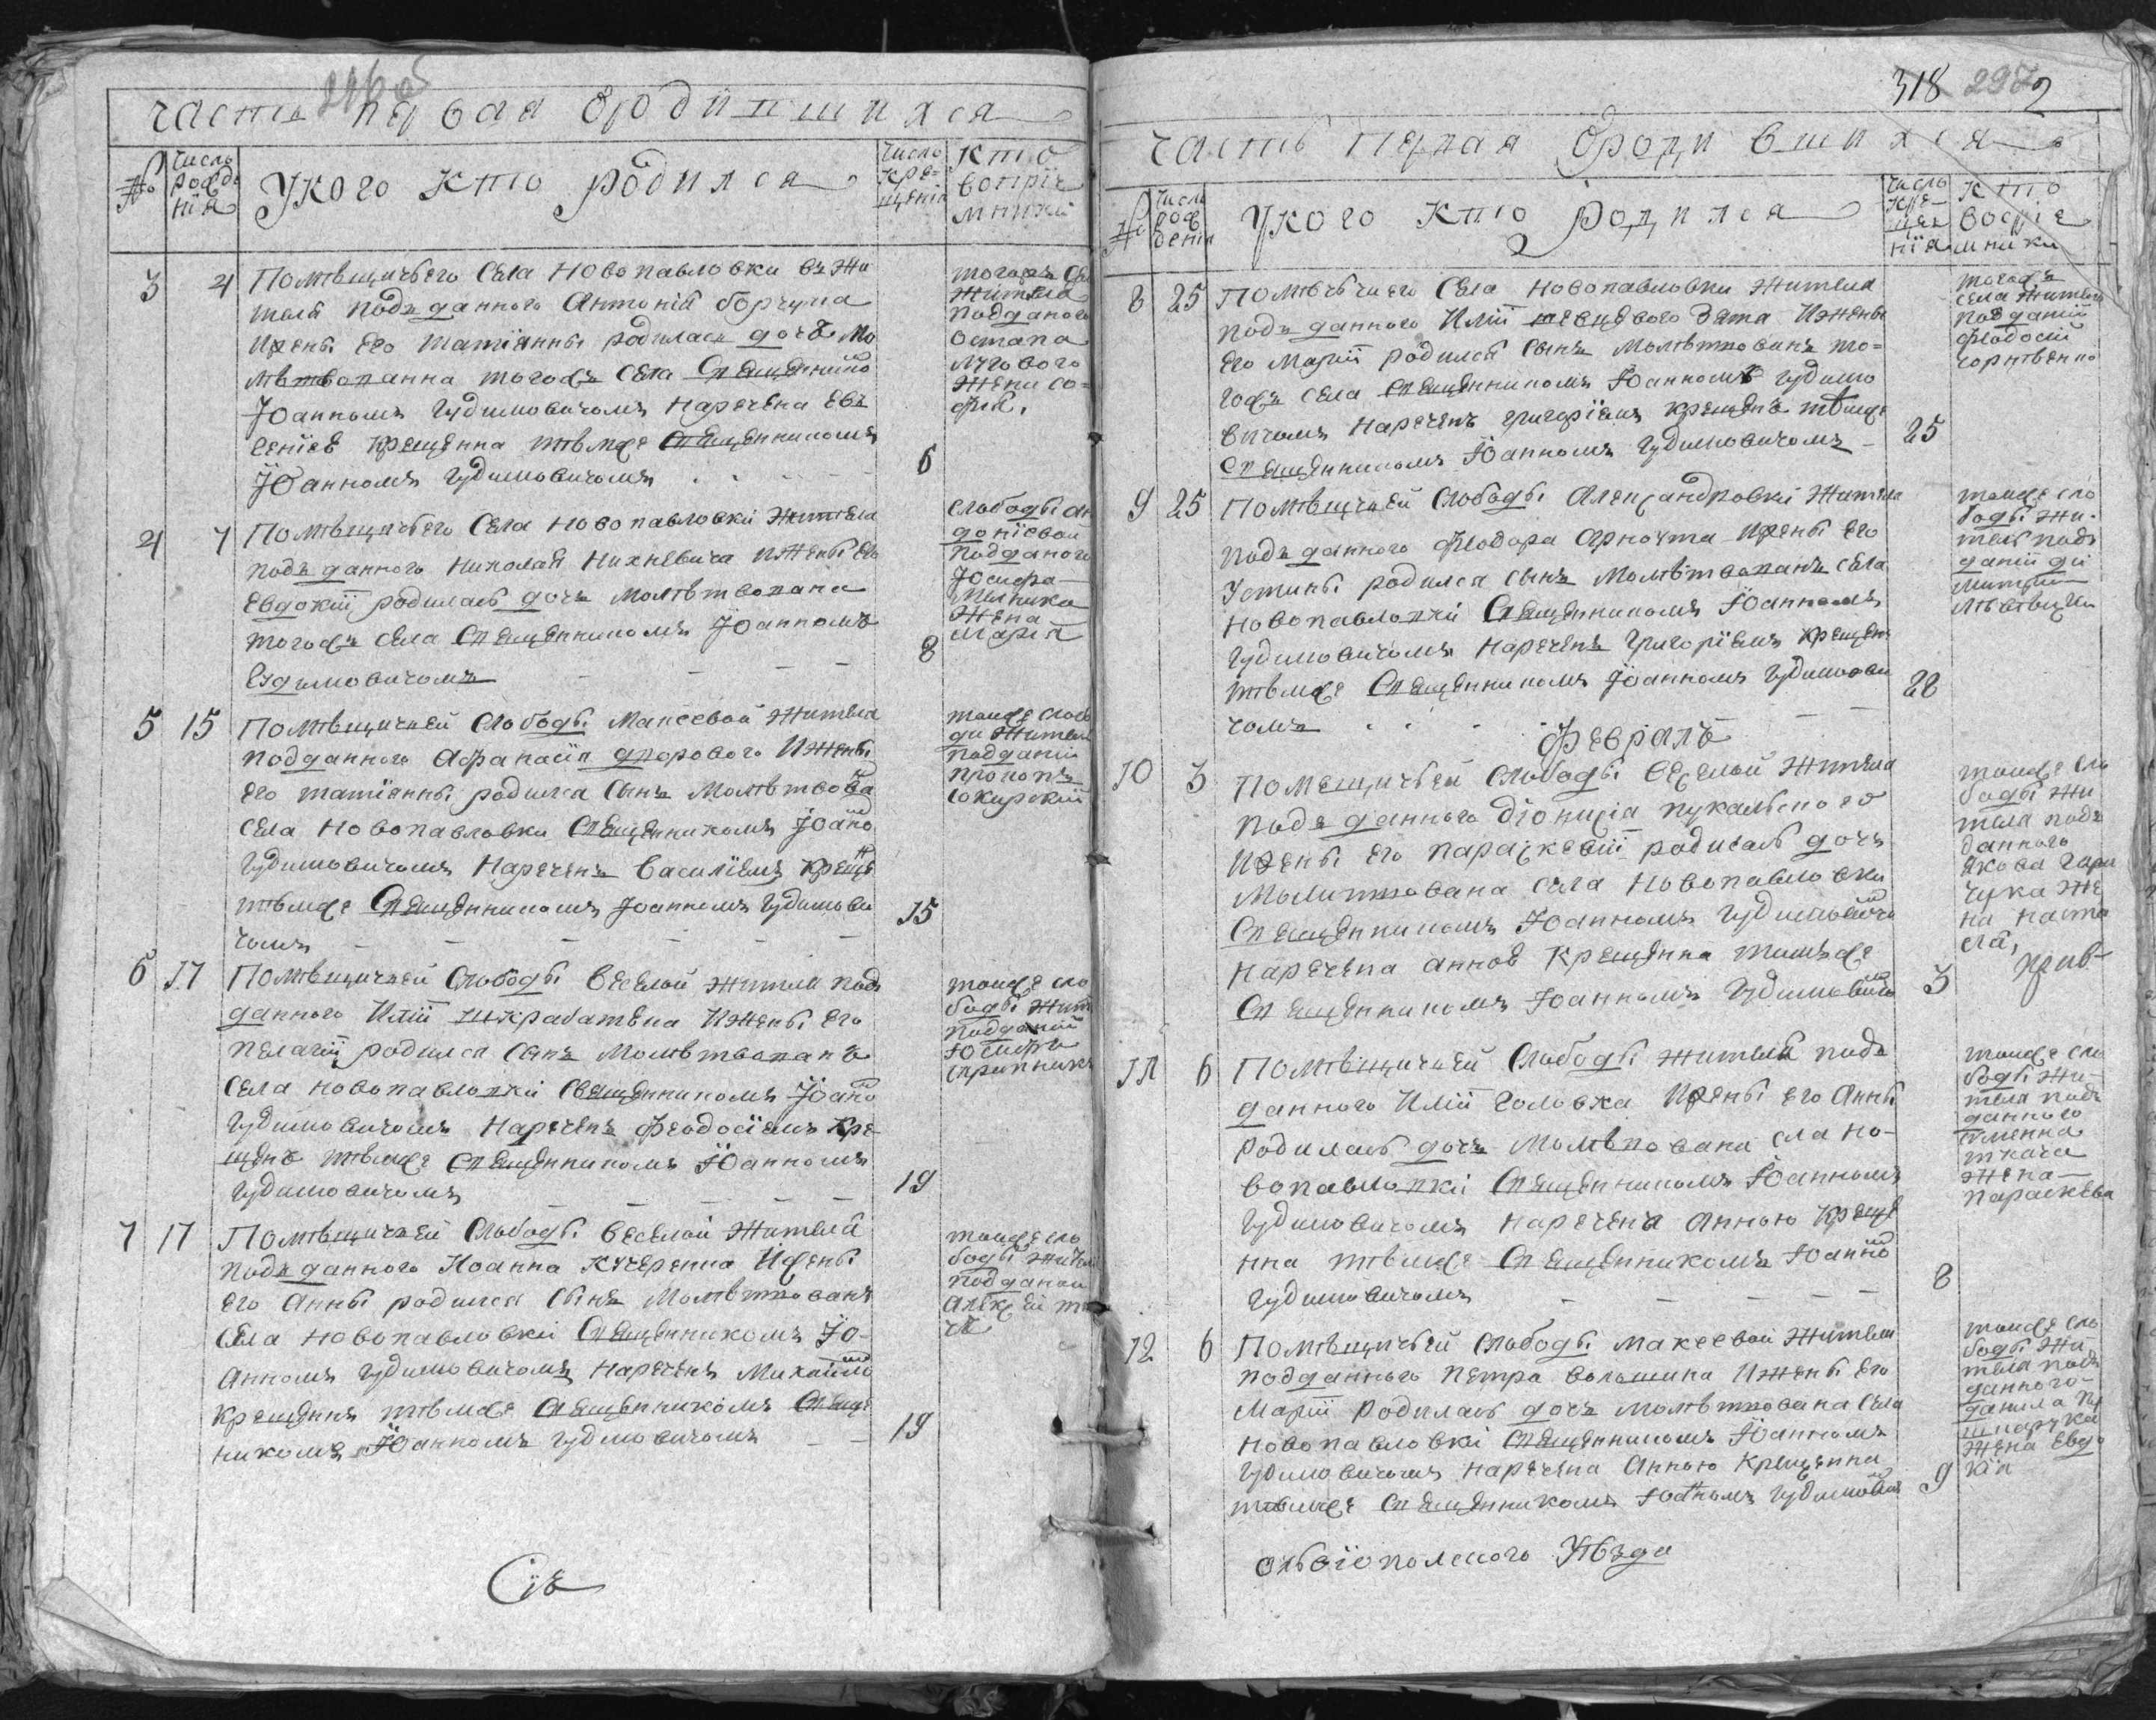 Часть первая о родившихся
№
Число рожде нія
У кого кто родился
Число кре= щенія
кто воспріе мники
3 4 Помѣщичьего Села Новопавловки въ жи
теля подъданного Антонія
Ижены его татіянны родилась дочь мо
литвованна тогожъ села Священнико
Іоанномъ Гудимовичомъ наречена Евъ
гениев крещенна тѣмже Священникомъ
Іоанномъ Гудимовичомъ 6
тогожъ Се
жителя
подданого
Остапа
лугового
жени со=
фія.
4 7 Помѣщичьего Села Новопавловки жителя
подъданного Николая ижены его
Евдокіи родилась дочь молитвована
тогожъ села Священникомъ Іоанномъ
Гудимовичомъ 8
слободы ан
донѣевой
подданого
Іосифа
жена
Марія
5 15 Помѣщичьей слободы Макеевой жителя
подданного Афанасія дворового ижены
его татіянны родился сынъ молитвова
села Новопавловки Священникомъ Іоано
Гудимовичомъ нареченъ василіемъ креще
тѣмже Священникомъ Іоанномъ Гудимови
чомъ 15
тоиже слобо
ди жителя
подданій
прокопъ
сокирскій
6 17 Помѣщичьей слободы веселой жителя подъ
данного Иліи ижены его
пелагіи родился сынъ молитвованъ
села новопавловки священникомъ Іоано
Гудимовичомъ нареченъ феодосіемъ кре
щенъ тѣмже священникомъ Іоанномъ
Гудимовичомъ 19
тоиже сло
боды жит
подданій
Юсифъ
7 17 Помѣщичьей слободы веселой жителя
подъданного Иоанна кучеренка ижены
его Анны родился сынъ молитвованъ
села новопавловки священникомъ Іо-
анномъ Гудимовичомъ нареченъ Михаило
крещеннъ тѣмже священникомъ свяще
никомъ Іоанномъ Гудимовичомъ 19
тоиже сло
боды жител
подданои
Алексѣй
318 297 2
Часть первая о родившихся
№
Число рож денія
У кого кто родился
Число кре= щен нія
кто воспріе мники
8 25 Помѣщичьего Села новопавловки жителя
подъданного Иліи зятя ижены
его Маріи родился сынъ молитвованъ то=
гожъ села священникомъ Іоанномъ Гудимо
вичомъ нареченъ григоріемъ крещенъ тѣмже
священникомъ Іоанномъ Гудимовичомъ 25
тогожъ
села жителя
подданій
феодосій
9 25 Помѣщичьей слободы Александровкі жителя
подъданного феодора Арнаута ижены его
Устины родился сынъ молитвованъ села
новопавловкі священникомъ Іоанномъ
Гудимовичомъ нареченъ григоріемъ крещенъ
тѣмже священникомъ Іоанномъ Гудимови
чомъ 28
тоиже сло
боды жи-
тель подъ
даній ди
митрій
Февраль
10 3 Помещичьей слободы веселой жителя
подъданного діонисія
ижены его параскевіи родилась дочъ
молитвована села новопавловки
священникомъ Іоанномъ Гудимовичо
наречена анной крещенна тимъже
священникомъ Іоанномъ Гудимовичо 3
тоиже сло
боды жи
теля подъ
данного
Якова
чука же
на наста
сія,
11 6 Помѣщичьей слободы жителя подъ
данного Иліи головка ижены его Анны
родилась дочъ молитвована села но-
вопавловкі священникомъ Іоанномъ
Гудимовичомъ наречена Анною креще
нна тѣмже священникомъ Іоанно
Гудимовичомъ 8
тоиже сло
боды жи-
теля подъ
данного
ткача
жена
параскева
12 6 Помѣщичьей слободы макеевой жителя
подданного петра волошина ижены его
Маріи родилась дочъ молитвована села
новопавловкі священникомъ Іоанномъ
Гудимовичомъ наречена Анною крещенна
тѣмже священникомъ Іоанномъ Гудимовичо 9
тоиже сло
боды жи
теля подъ
данного
данила
жена Евдо
кія
ольвіополского Уѣзда